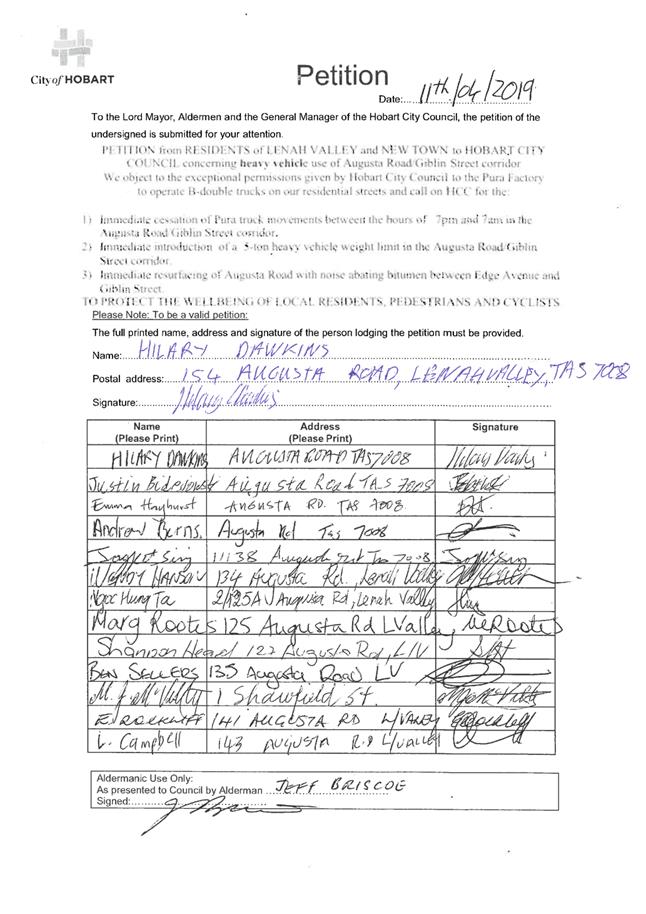 City of HOBART
Petition
Date: 11th/04/2019
To the Lord Mayor, Aldermen and the General Manager of the Hobart City Council, the petition of the
undersigned is submitted for your attention.
PETITION from RESIDENTS of LENAH VALLEY and NEW TOWN to HOBART CITY
COUNCIL concerning heavy vehicle use of Augusta Road/Giblin Street corridor
We object to the exceptional permissions given by Hobart City Council to the Pura Factory
to operate B-double trucks on our residential streets and call on HCC for the:
1) Immediate cessation of Pura truck movements between the hours of 7pm and 7am in the
Augusta Road Giblin Street corridor.
2) Immediate introduction of a 5-ton heavy vehicle weight limit in the Augusta Road/Giblin
Street corridor.
3) Immediate resurfacing of Augusta Road with noise abating bitumen between Edge Avenue and
Giblin Street.
TO PROTECT THE WELLBEING OF LOCAL RESIDENTS, PEDESTRIANS AND CYCLISTS
Please Note: To be a valid petition:
The full printed name, address and signature of the person lodging the petition must be provided.
Name: HILARY DAWKINS
Postal address: 154 AUGUSTA ROAD, LENAH VALLEY, TAS 7008
Signature: Hilary Dawkins
Name Address Signature
(Please Print) (Please Print)
HILARY DAWKINS AUGUSTA ROAD TAS 7008 Hilary Dawkins
Justin Augusta Road TAS 7008
Emma Hayhurst AUGUSTA RD. TAS 7008
Andrew Burns. Augusta Rd Tas 7008
Sing 7008
HANSON 134 Augusta Rd, Lenah Valley
Ngoc Hung Ta 2/125A Augusta Rd, Lenah Valley
Marg Rootes 125 Augusta Rd L Valley, M Rootes
Shannon Head 127 Augusta Rd, L/V
BEN SELLERS 135 Augusta Road LV
1 Shawfield St.
141 AUGUSTA RD L/VALLEY
L. Campbell 143 AUGUSTA RD L/VALLEY
Aldermanic Use Only:
As presented to Council by Alderman JEFF BRISCOE
Signed: